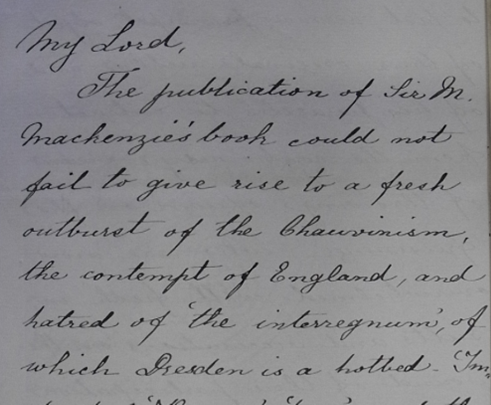 My Lord,
The publication of Sir M.
Mackenzie's book could not
fail to give rise to a fresh
outburst of the Chauvinism,
the contempt of England, and
hatred of 'the interregnum', of
which Dresden is a hotbed. 'Im-